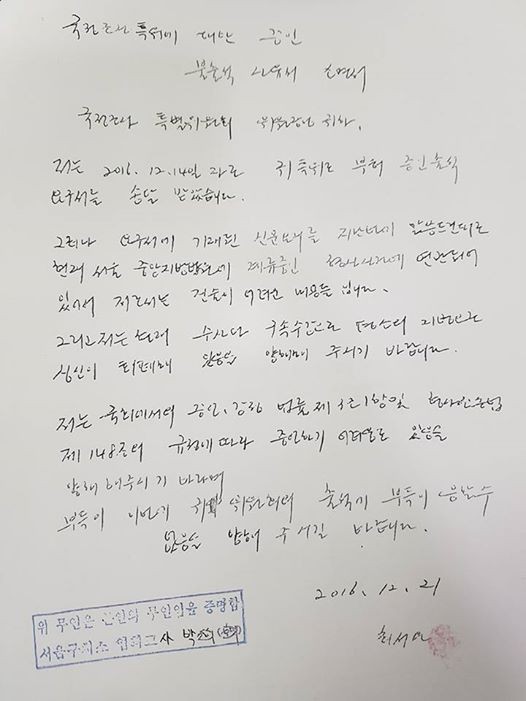 국정조사 특위에 대한 증인
불출석 사유서 소명서
국정조사 특별위원회 위원장님 귀하.
저는 2016. 12. 14일 귀 특위로 부터 증인출석
요구서를 송달 받았습니다.
그러나 요구서에 기재된 신문요지를 지난번에 말씀드린대로
현재 서울 중앙지방법원에 계류중인 형사사건에 연관되어
있어서 저로서는 진술이 어려운 내용들 입니다.
그리고 저는 현재 수사와 구속수감으로 평소의 지병으로
심신이 피폐해 있음을 양해해 주시기 바랍니다.
저는 국회에서의 증언, 감정 법률 제3조1항및 형사소송법
제148조의 규정에 따라 증언하기 어려운 있음을
양해해주시기 바라며
부득이 이번에 귀 위원회의 출석에 부득이 응할수
없음을 양해 주시길 바랍니다.
2016. 12. 21
최서원
위 무인은 본인의 무인임을 증명함
서울구치소 교 사 박